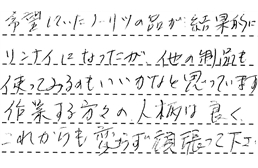 希望していたノーリツの品が結果的に
リンナイになったが、他の製品も
使ってみるのもいいかなと思っています
作業する方々の人柄は良く
これからも変わらず頑張って下さい